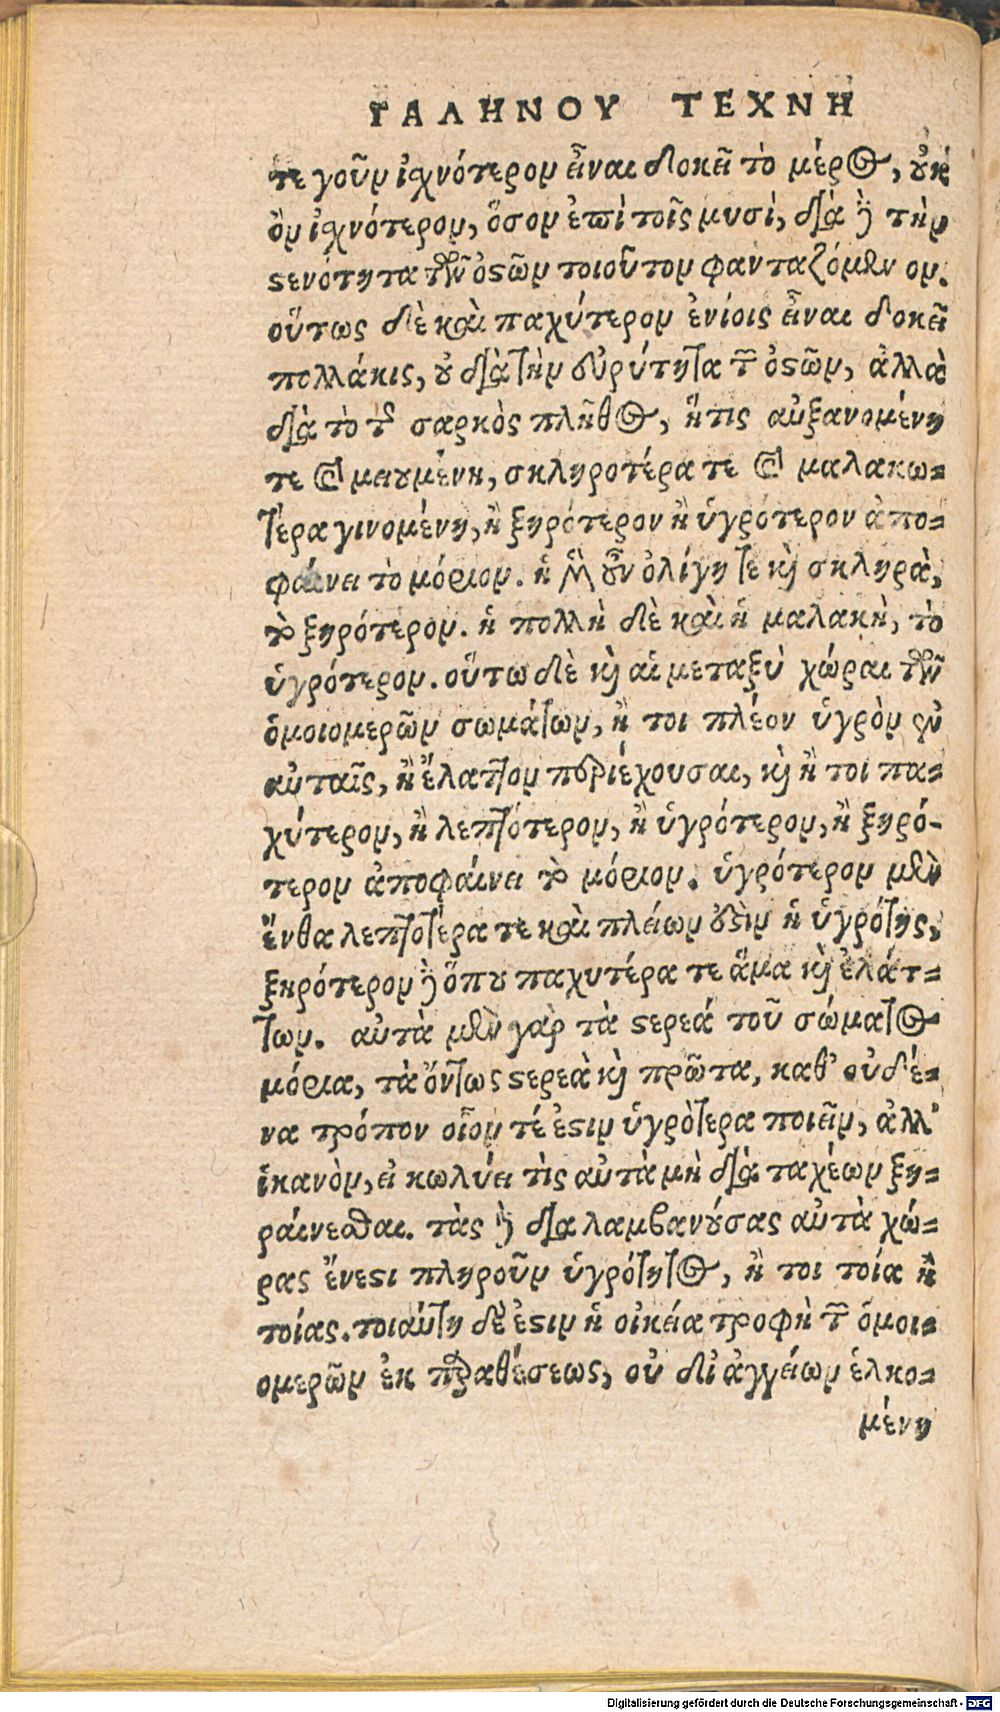 ΓΑΛΗΝΟΥ ΤΕΧΝΗ
τε γοῦν ἰχνότερον εἶναι δοκεῖ τὸ μέρος, οὐκ
ὂν ἰχνότερον, ὅσον ἐπὶ τοῖς μυσὶ, διὰ δὲ τὴν
στενότητα τῶν ὀστῶν τοιοῦτον φανταζόμενον.
οὕτως δὲ καὶ παχύτερον ἐνίοις εἶναι δοκεῖ
πολλάκις, οὐ διὰ τὴν εὐρύτητα τῶν ὀστῶν, ἀλλὰ
διὰ τὸ τῆς σαρκὸς πλῆθος, ἥτις αὐξανομένη
τε καὶ μειουμένη, σκληροτέρα τε καὶ μαλακω-
τέρα γινομένη, ἢ ξηρότερον ἢ ὑγρότερον ἀπο-
φαίνει τὸ μόριον. ἡ μὲν οὖν ὀλίγη τε καὶ σκληρὰ,
τὸ ξηρότερον. ἡ πολλὴ δὲ καὶ ἡ μαλακὴ, τὸ
ὑγρότερον. οὕτω δὲ καὶ αἱ μεταξὺ χώραι τῶν
ὁμοιομερῶν σωμάτων, ἤ τοι πλέον ὑγρὸν ἐν
αὑταῖς, ἢ ἔλαττον περιέχουσαι, καὶ ἤ τοι πα-
χύτερον, ἢ λεπτότερον, ἢ ὑγρότερον, ἢ ξηρό-
τερον ἀποφαίνει τὸ μόριον. ὑγρότερον μὲν
ἔνθα λεπτοτέρα τε καὶ πλείων ἐστὶν ἡ ὑγρότης,
ξηρότερον δὲ ὅπου παχυτέρα τε ἅμα καὶ ἐλάτ-
των. αὐτὰ μὲν γὰρ τὰ στερεά τοῦ σώματος
μόρια, τὰ ὄντως στερεὰ καὶ πρῶτα, καθ’ οὐδέ-
να τρόπον οἷόν τέ ἐστιν ὑγρότερα ποιεῖν, ἀλλ’
ἱκανὸν, εἰ κωλύει τὶς αὐτὰ μὴ διὰ ταχέων ξη-
ραίνεσθαι. τὰς δὲ διαλαμβανούσας αὐτὰ χώ-
ρας ἔνεστι πληροῦν ὑγρότητος, ἤ τοι τοία ἢ
τοίας. τοιαύτη δέ ἐστιν ἡ οἰκεία τροφὴ τῶν ὁμοι-
ομερῶν ἐκ παραθέσεως, οὐ δι ἀγγείων ἑλκο-
μένη
Digitalisierung gefördert durch die Deutsche Forschungsgemeinschaft - DFG